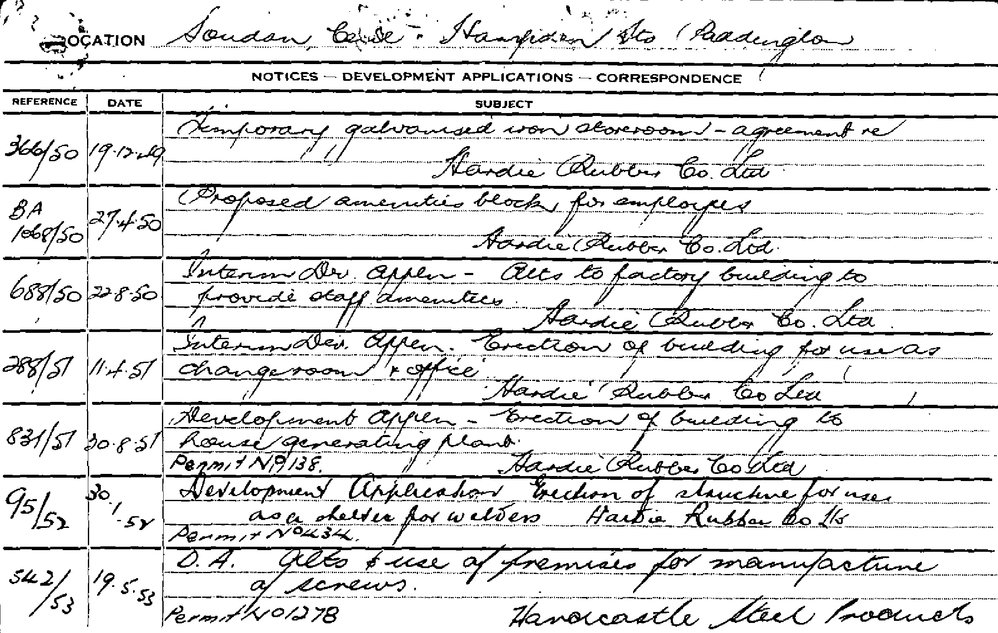 LOCATION Soudan, &. Hampden Sts Paddington
NOTICES — DEVELOPMENT APPLICATIONS — CORRESPONDENCE
REFERENCE DATE SUBJECT
366/50 19.12.49 Temporary galvanised iron storeroom - agreement re
Hardie Rubber Co. Ltd
BA 1068/50 27.4.50 Proposed amenities block for employees
Hardie Rubber Co. Ltd.
688/50 22.8.50 Interim Dev. Appen - Alts to factory building to
provide staff amenities.
Hardie Rubber Co. Ltd.
288/51 11.4.51 Interim Dev. Appen. Erection of building for use as
changeroom & office
Hardie Rubber Co Ltd
831/51 30.8.51 Development Appen - Erection of building to
house generating plant.
Permit No 138. Hardie Rubber Co Ltd
95/52 30.1.52 Development Application Erection of structure for use
as a shelter for welders Hardie Rubber Co Ltd
Permit No 434.
542/53 19.5.53 D.A. Alts & use of premises for manufacture
of screws.
Permit No 1278 Handcastle Steel Products